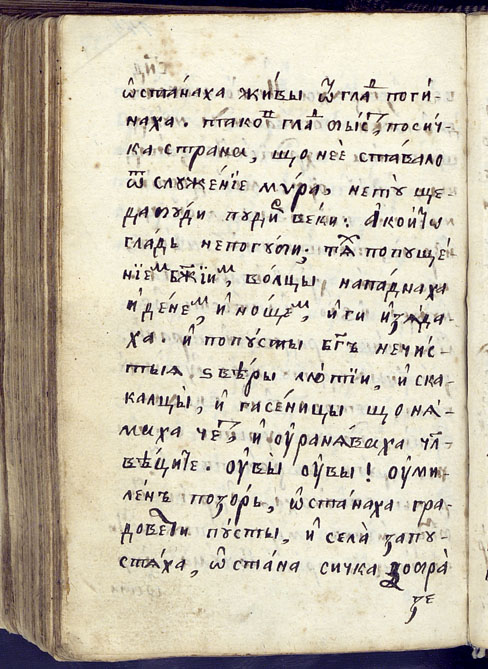 ѡ҆стана́ха жи́вы ѿ гла́д поги́-
наха. и тако́ гла́д мы́сл, по си́ч-
ка страна, що не́е ста́вало
ѿ служе́нїе ми́ра,
веки. А҆ кои́то
гладь непогуби;  попуще́-
нїем бж҃їим, во́лцы нападнаха
и҆ де́нем, и҆ но́щем, и҆ ги и҆зѧ́да-
ха. и҆ попу́сты бг҃ъ нечи́с-
тыѧ ѕвѣ́ры лю́тїи, и҆ ска-
калцы̀, и҆ гисе́ницы що нѧ́-
маха че́т, и҆ ᲂу҆ранѧ́ваха чл҃-
вѣ́ците. ᲂу҆вы̀ ᲂу҆вы! ᲂу҆ми-
ле́нъ позо́рь, ѡ҆ста́наха гра-
дове́ти пу́сты, и҆ села̀ запу-
стѧ́ха, ѡ҆ста́на сичка ꙁоарà
ꙁе